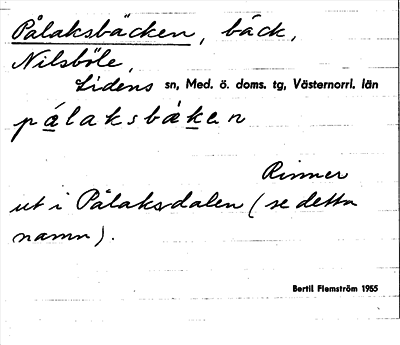 Pålaksbäcken, bäck,
Nilsböle,
Lidens sn, Med. ö. doms. tg, Västernorrl. län
pálaksbäken
Rinner
ut i Pålaksdalen (se detta
namn).
Bertil Flemström 1955